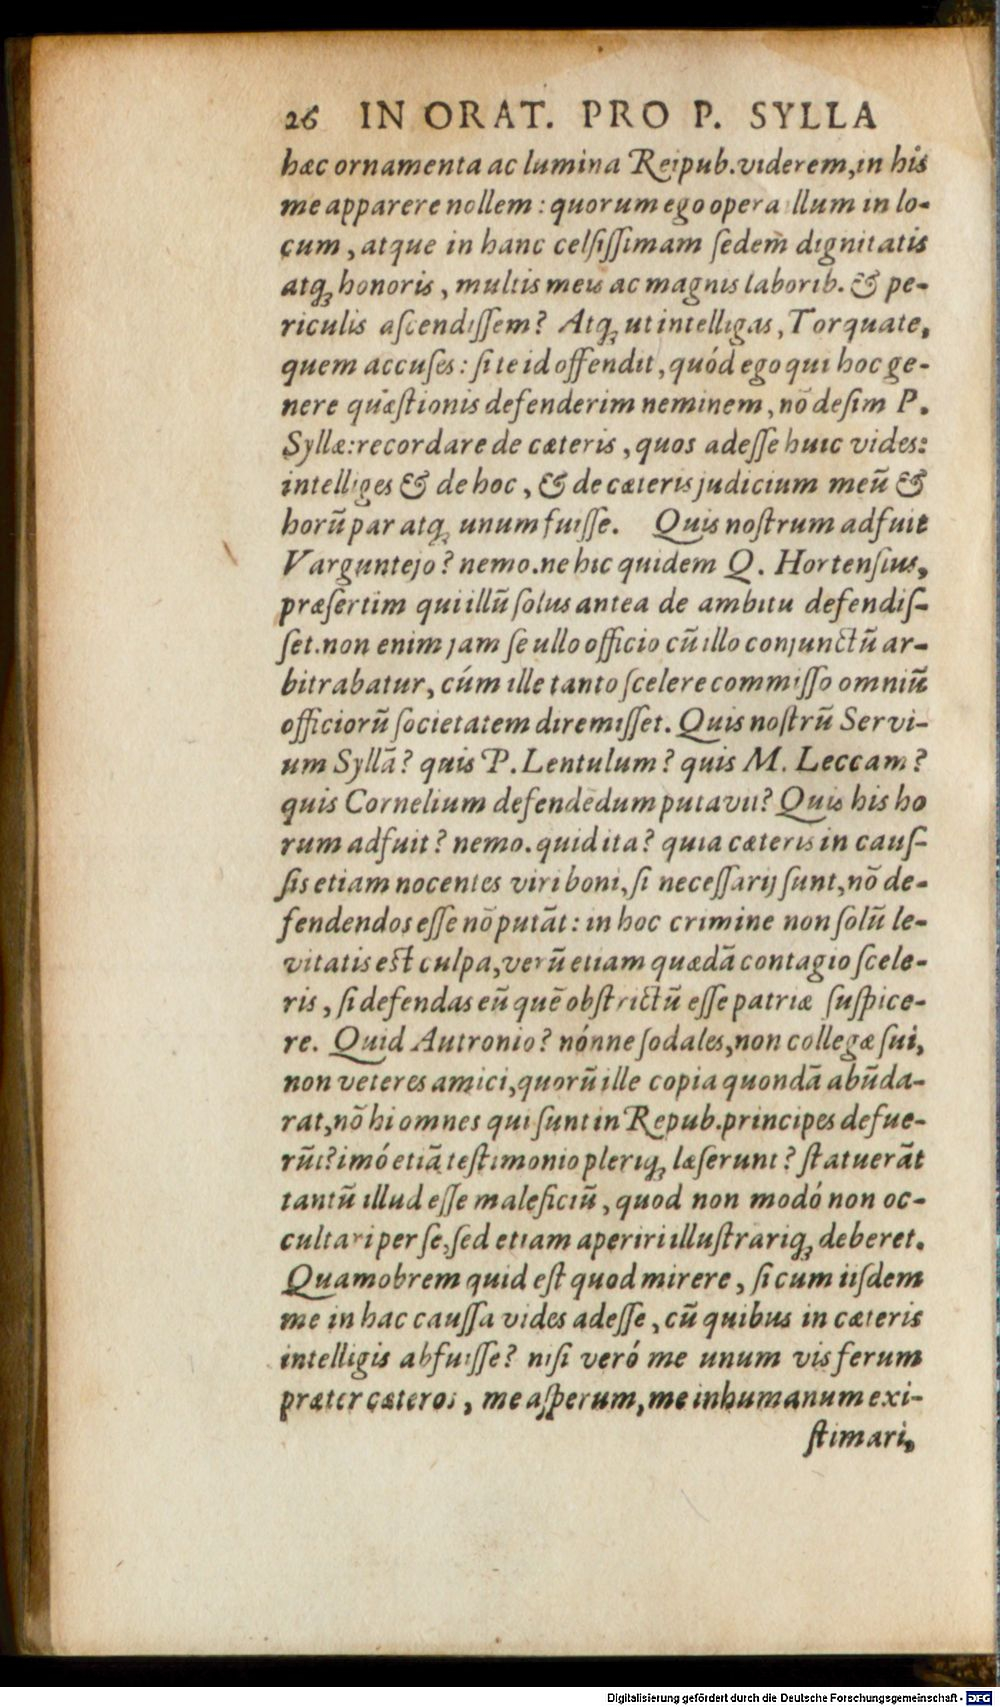 26 IN ORAT. PRO P. SYLLA
hæc ornamenta ac lumina Reipub. viderem, in his
me apparere nollem: quorum ego opera illum in lo-
cum, atque in hanc celſiſſimam ſedem dignitatis
atq́; honoris, multis meis ac magnis laborib. & pe-
riculis aſcendiſſem? Atq́; ut intelligas, Torquate,
quem accuſes: ſi te id offendit, quód ego qui hoc ge-
nere quæſtionis defenderim neminem, nõ deſim P.
Syllæ: recordare de cæteris, quos adeſſe huic vides:
intelliges & de hoc, & de cæteris judicium meũ &
horũ par atq́; unum fuiſſe. Quis noſtrum adfuit
Varguntejo? nemo. ne hic quidem Q. Hortenſius,
præſertim qui illũ ſolus antea de ambitu defendiſ-
ſet. non enim jam ſe ullo officio cũ illo conjunctũ ar-
bitrabatur, cúm ille tanto ſcelere commiſſo omniũ
officiorũ ſocietatem diremiſſet. Quis noſtrũ Servi-
um Syllã? quis P. Lentulum? quis M. Leccam?
quis Cornelium defendẽdum putavit? Quis his ho
rum adfuit? nemo. quid ita? quia cæteris in cauſ-
ſis etiam nocentes viri boni, ſi neceſſarij ſunt, nõ de-
fendendos eſſe nõ putãt: in hoc crimine non ſolũ le-
vitatis eſt culpa, verũ etiam quædã contagio ſcele-
ris, ſi defendas eũ quẽ obſtrictũ eſſe patriæ ſuſpice-
re. Quid Autronio? nónne ſodales, non collegæ ſui,
non veteres amici, quorũ ille copia quondã abũda-
rat, nõ hi omnes qui ſunt in Repub. principes defue-
rũt? imó etiã teſtimonio pleriq́; læſerunt? ſtatuerãt
tantũ illud eſſe maleficiũ, quod non modó non oc-
cultari per ſe, ſed etiam aperiri illuſtrariq́; deberet.
Quamobrem quid eſt quod mirere, ſi cum iiſdem
me in hac cauſſa vides adeſſe, cũ quibus in cæteris
intelligis abfuiſſe? niſi veró me unum vis ferum
præter cæteros, me aſperum, me inhumanum exi-
ſtimari,
Digitalisierung gefördert durch die Deutsche Forschungsgemeinschaft - DFG